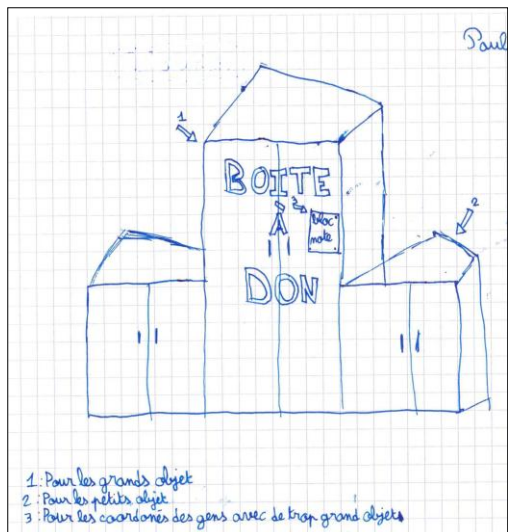 Paul
1
BOITE
3
À
bloc
note
2
DON
1: Pour les grands objet
2: Pour les petits objet
3: Pour les coordonés des gens avec de trop grand objets